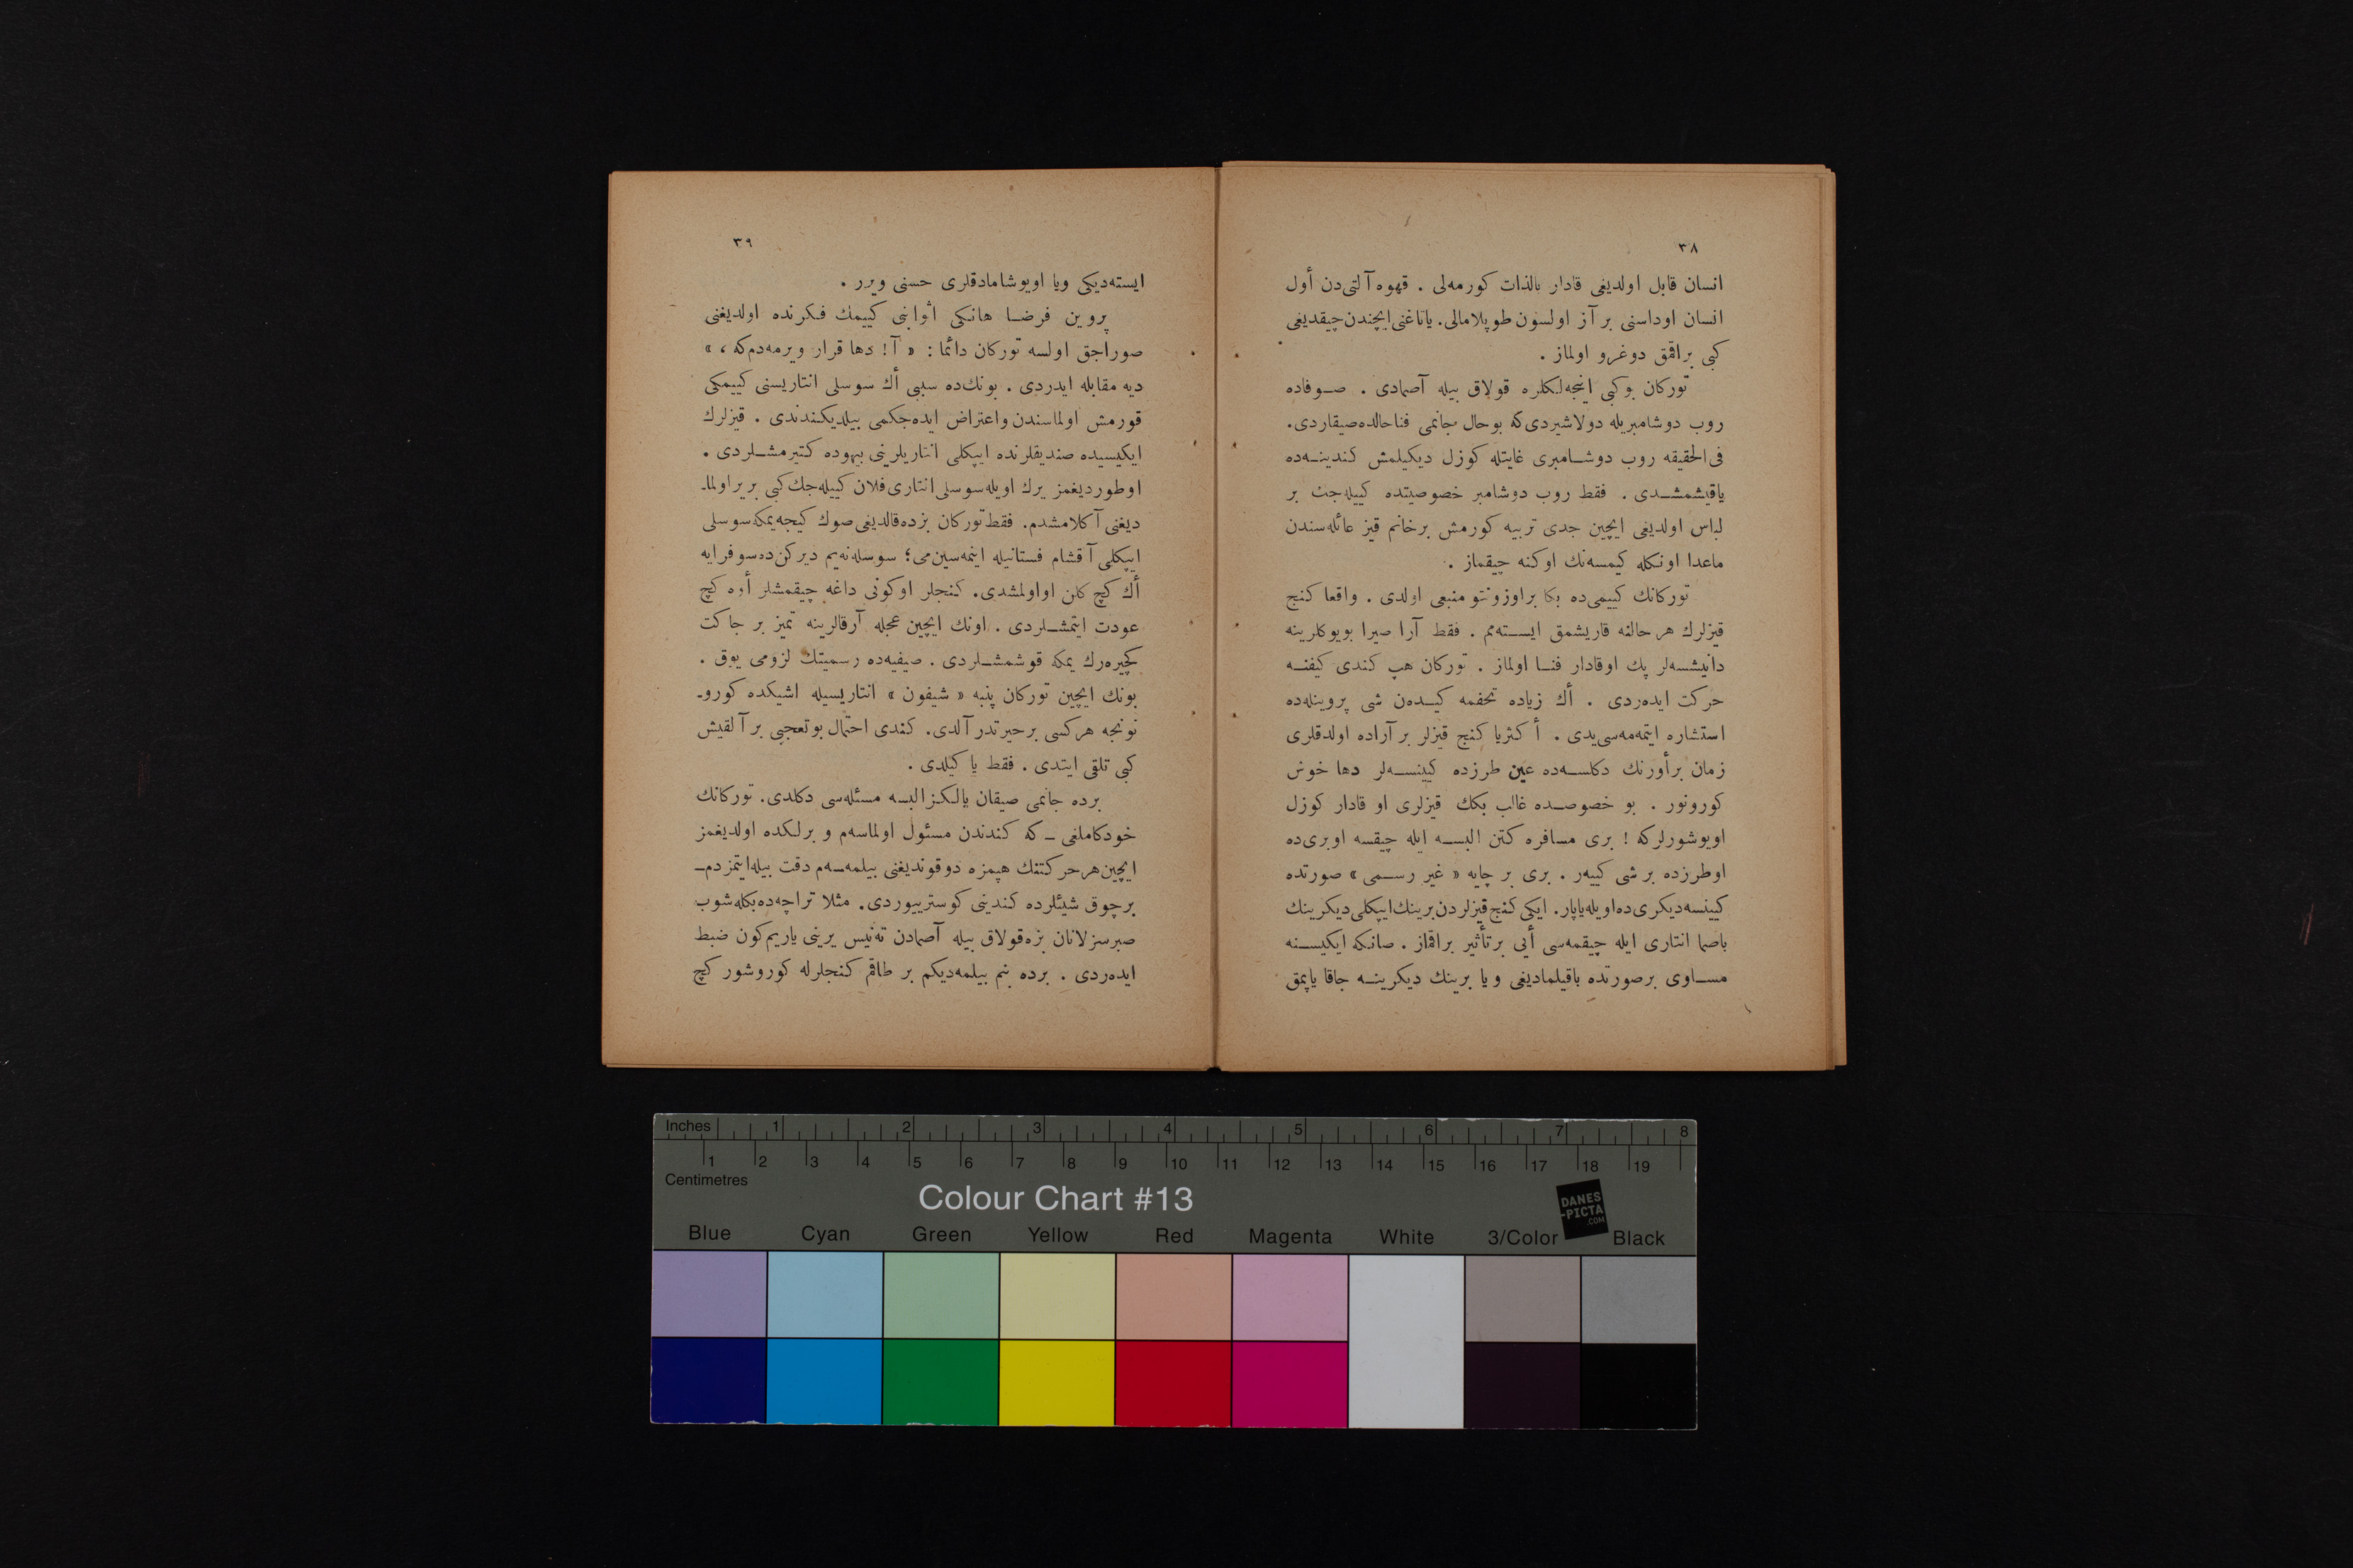 ٣٨
انسان قابل اولديغى قادار بالذات كورمه‌لى . قهوه آلتى‌دن أول
انسان اوداسنى بر آز اولسون طوپلامالى. ياتاغنى ايچندن چيقديغى
كبى براقمق دوغرو اولماز .
توركان بوكبى اينجه‌لكلره قولاق بيله آصمادى . صوفاده
روب دوشامبريله دولاشيردى‌كه بوحال جانمى فناحالده‌صيقاردى.
فى‌الحقيقه روب دوشامبرى غايتله كوزل ديكيلمش كندينه‌ده
ياقيشمشدى . فقط روب دوشامبر خصوصيتده كييله‌جك بر
لباس اولديغى ايچين جدى تربيه كورمش برخانم قيز عائله‌سندن
ماعدا اونكله كيمسه‌نك اوكنه چيقماز .
توركانك كييمى‌ده بكا براوزونتو منبعى اولدى . واقعا كنج
قيزلرك هر حالنه قاريشمق ايسته‌مم . فقط آرا صيرا بويوكلرينه
دانيشسه‌لر پك اوقادار فنا اولماز . توركان هپ كندى كيفنه
حركت ايده‌ردى . أك زياده تحفمه كيده‌ن شى پروينله‌ده
استشاره ايتمه‌مه‌سى‌يدى . أكثريا كنج قيزلر بر آراده اولدقلرى
زمان برأورنك دكلسه‌ده عين طرزده كيينسه‌لر دها خوش
كورونور . بو خصوصده غالب بكك قيزلرى او قادار كوزل
اويوشورلركه ! برى مسافره كتن البسه ايله چيقسه اوبرى‌ده
اوطرزده بر شى كييه‌ر . برى بر چايه « غير رسمى » صورتده
كيينسه‌ديكرى‌ده‌اويله‌ياپار. ايكى كنج قيزلردن برينك ايپكلى ديكرينك
باصما انتارى ايله چيقمه‌سى أيى بر تأثير براقماز . صانكه ايكيسنه
مساوى برصورتده باقيلماديغى ويا برينك ديكرينه جاقا ياپمق
٣٩
ايسته‌ديكى ويا اويوشامادقلرى حسنى ويرر .
پروين فرضا هانكى اثوابنى كييمك فكرنده اولديغنى
صوراجق اولسه توركان دائما : « آ ! دها قرار ويرمه‌دم‌كه ، »
ديه مقابله ايدردى . بونك‌ده سببى أك سوسلى انتاريسنى كييمكى
قورمش اولماسندن واعتراض ايده‌جكمى بيلديكندندى . قيزلرك
ايكيسيده صنديقلرنده ايپكلى انتاريلرينى بيهوده كتيرمشلردى .
اوطورديغمز يرك اويله سوسلى انتارى فلان كييله‌جك كبى بر ير اولما-
ديغنى آكلامشدم. فقط توركان بزده‌قالديغى صوك كيجه يمكه سوسلى
ايپكلى آقشام فستانيله اينمه‌سين‌مى؛ سوسله‌نه‌يم ديركن‌ده سوفرايه
أك كچ كلن اواولمشدى. كنجلر اوكونى داغه چيقمشلر أوه كچ
عودت ايتمشلردى . اونك ايچين عجله آرقالرينه تميز بر جاكت
كچيره‌رك يمكه قوشمشلردى . صيفيه‌ده رسميتك لزومى يوق .
بونك ايچين توركان پنبه « شيفون » انتاريسيله اشيكده كورو-
نونجه هركسى برحيرتدر آلدى. كندى احتمال بوتعجبى بر آلقيش
كبى تلقى ايتدى . فقط يا كيلدى .
برده جانمى صيقان يالكز البسه مسئله‌سى دكلدى. توركانك
خودكاملغى ـ كه كندندن مسئول اولماسه‌م و برلكده اولديغمز
ايچين هر حركتنك هپمزه دوقونديغنى بيلمه‌سه‌م دقت بيله‌ايتمزدم ـ
برچوق شيئلرده كندينى كوسترييوردى. مثلا تراچه‌ده‌بكله‌شوب
صبرسزلانان بزه‌قولاق بيله آصمادن ته‌نيس يرينى ياريم كون ضبط
ايده‌ردى . برده بنم بيلمه‌ديكم بر طاقم كنجلرله كوروشور كچ
Inches 1 2 3 4 5 6 7 8
1 2 3 4 5 6 7 8 9 10 11 12 13 14 15 16 17 18 19
Centimetres
Colour Chart #13
DANES
-PICTA
.COM
Blue Cyan Green Yellow Red Magenta White 3/Color Black